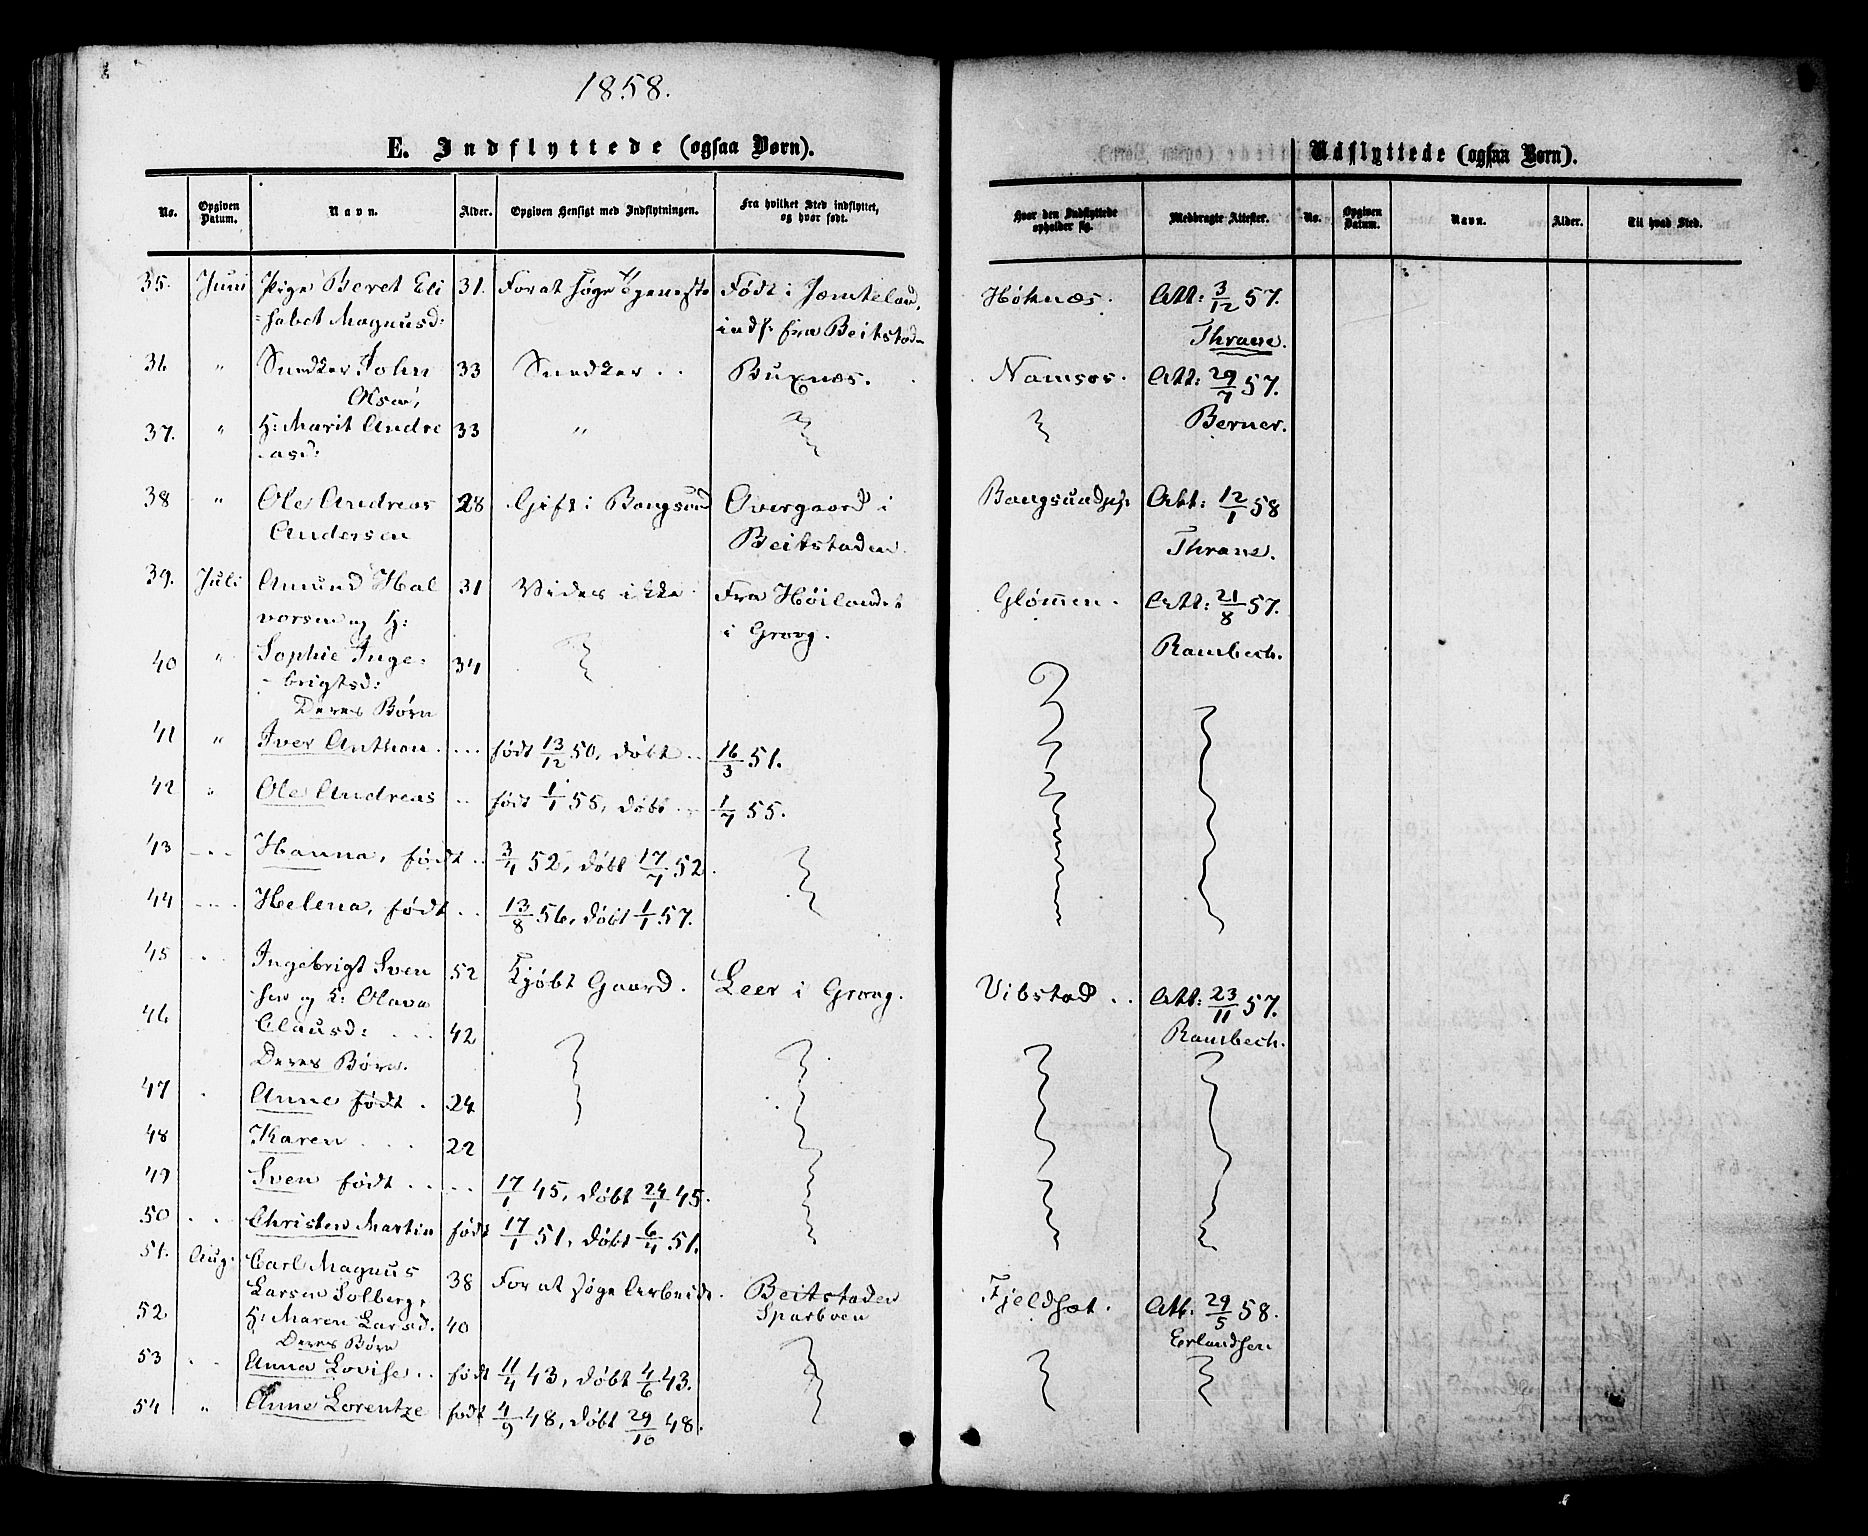 1858.
E. Indflyttede (ogsaa Børn).
Udflyttede (ogsaa Børn).
No. Opgiven Datum. Navn. Alder. Opgiven Hensigt med Indflytningen. Fra hvilket Sted indflyttet, og hvor født. Hvor den Indflyttede opholder sig. Medbragte Attester. No. Opgiven Datum. Navn. Alder. Til hvad Sted.
35. Juni Pige Beret Eli 31. For at søge Tjeneste Født i Jemteland, Høknæs. Att: 3/12 57.
=sabet Magnusd: indf: fra Beitstaden Thrane.
36 " Snedker John 33 Snedker .. Buxnæs. Namsos. Att: 29/7 57.
Olsen, Berner.
37. " H: Marit Andre 33 "
asd:
38 " Ole Andreas 28 Gift i Bangsund Overgaard i Bangsund Att: 12/1 58
Andersen Beitstaden. Thrane.
39. Juli Amund Hal 31 Vides ikke Fra Høilandet Glømmen. Att: 21/8 57.
vorsen og H: i Grong. Rambech.
40 " Sophie Inge- 34
brigtsd:
Deres Børn
41 " Iver Anthon.... født 13/12 50, døbt .. 16/3 51.
42 " Ole Andreas .. født 1/1 55, døbt .. 1/7 55.
43 ... Hanna, født .. 3/4 52, døbt 17/7 52.
44 .... Helena, født .. 13/8 56, døbt 1/1 57.
45 .. Ingebrigt Sven 52 Kjøbt Gaard. Leer i Grong. Vibstad .. Att: 23/11 57.
sen og K: Olava Rambech.
46 Clausd: .... 42
Deres Børn.
47 . Anne født . 24
48 Karen .... 22
49 Sven født .... 17/1 45, døbt 24/1 45.
50 .. Christen Martin født 17/1 51, døbt 6/4 51.
51. Aug. Carl Magnus 38 For at søge Arbeide. Beitstaden Fjeldset. Att: 29/5 58.
Larsen Solberg, Sparboen Erlandsen
52. H: Maren Larsd. 40
Deres Børn
53 .. Anna Lovise.. født 11/4 43, døbt 4/6 43.
54 " Anne Lorentze født 4/9 48, døbt 29/10 48.